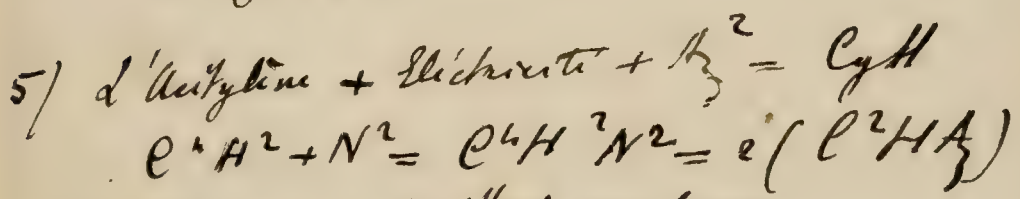 5) L'Acétylène + Eléctricité + Az² = CyH
C⁴H² + N² = C⁴H²N² = 2(C²HAz)